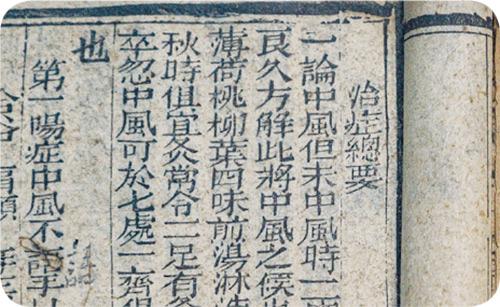 治症總要
一論中風但未中風時一
良久方解此將中風之候
薄荷桃柳葉四味煎湯淋
秋時俱宜灸常令二足有
卒忽中風可於七處一齊俱
也
第一陽症中風不語手
語
合谷 肩髃